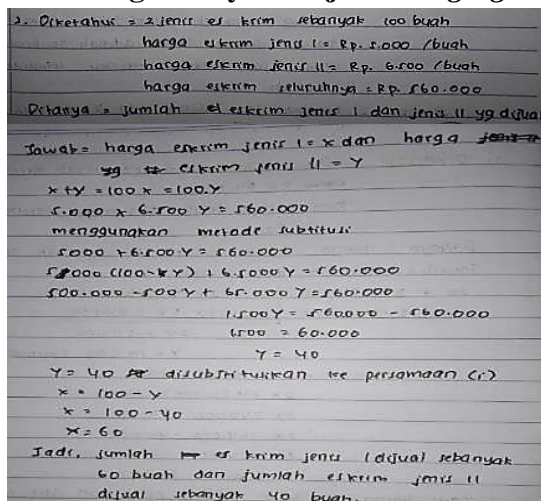 2. Diketahui = 2 jenis es krim sebanyak 100 buah
harga eskrim jenis I = Rp. 5.000 /buah
harga eskrim jenis II = Rp. 6.500 /buah
harga eskrim seluruhnya = Rp. 560.000
Ditanya = jumlah el eskrim jenis I dan jenis II yg dijual
Jawab = harga eskrim jenis I = x dan harga
yg eskrim jenis II = Y
x + y = 100 x = 100.Y
5.000 x 6.500 Y = 560.000
menggunakan metode subtitusi
5000 + 6.500.Y = 560.000
5.000 (100-Y) + 6.5000 Y = 560.000
500.000 - 500 Y + 65.000 Y = 560.000
1.500Y = 560.000 - 560.000
1.500 = 60.000
Y = 40
Y = 40 disubstitusikan ke persamaan (i)
x = 100 - Y
x = 100 - 40
x = 60
Jadi, jumlah es krim jenis I dijual sebanyak
60 buah dan jumlah eskrim jenis II
dijual sebanyak 40 buah.